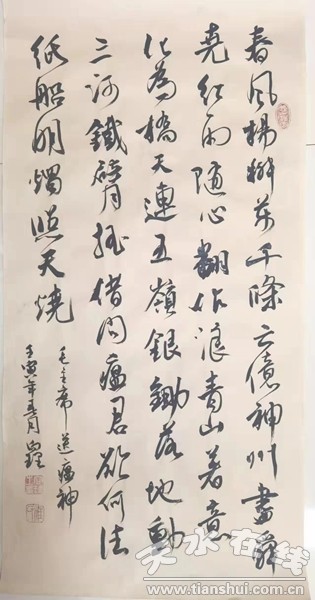 春风楊柳萬千條六億神州盡舜
堯红雨随心翻作浪青山著意
化為橋天連五嶺銀鋤落地動
三河鐵臂摇借問瘟君欲何往
纸船明燭照天燒
毛主席送瘟神
壬寅年五月
天水在线
www.tianshui.com.cn